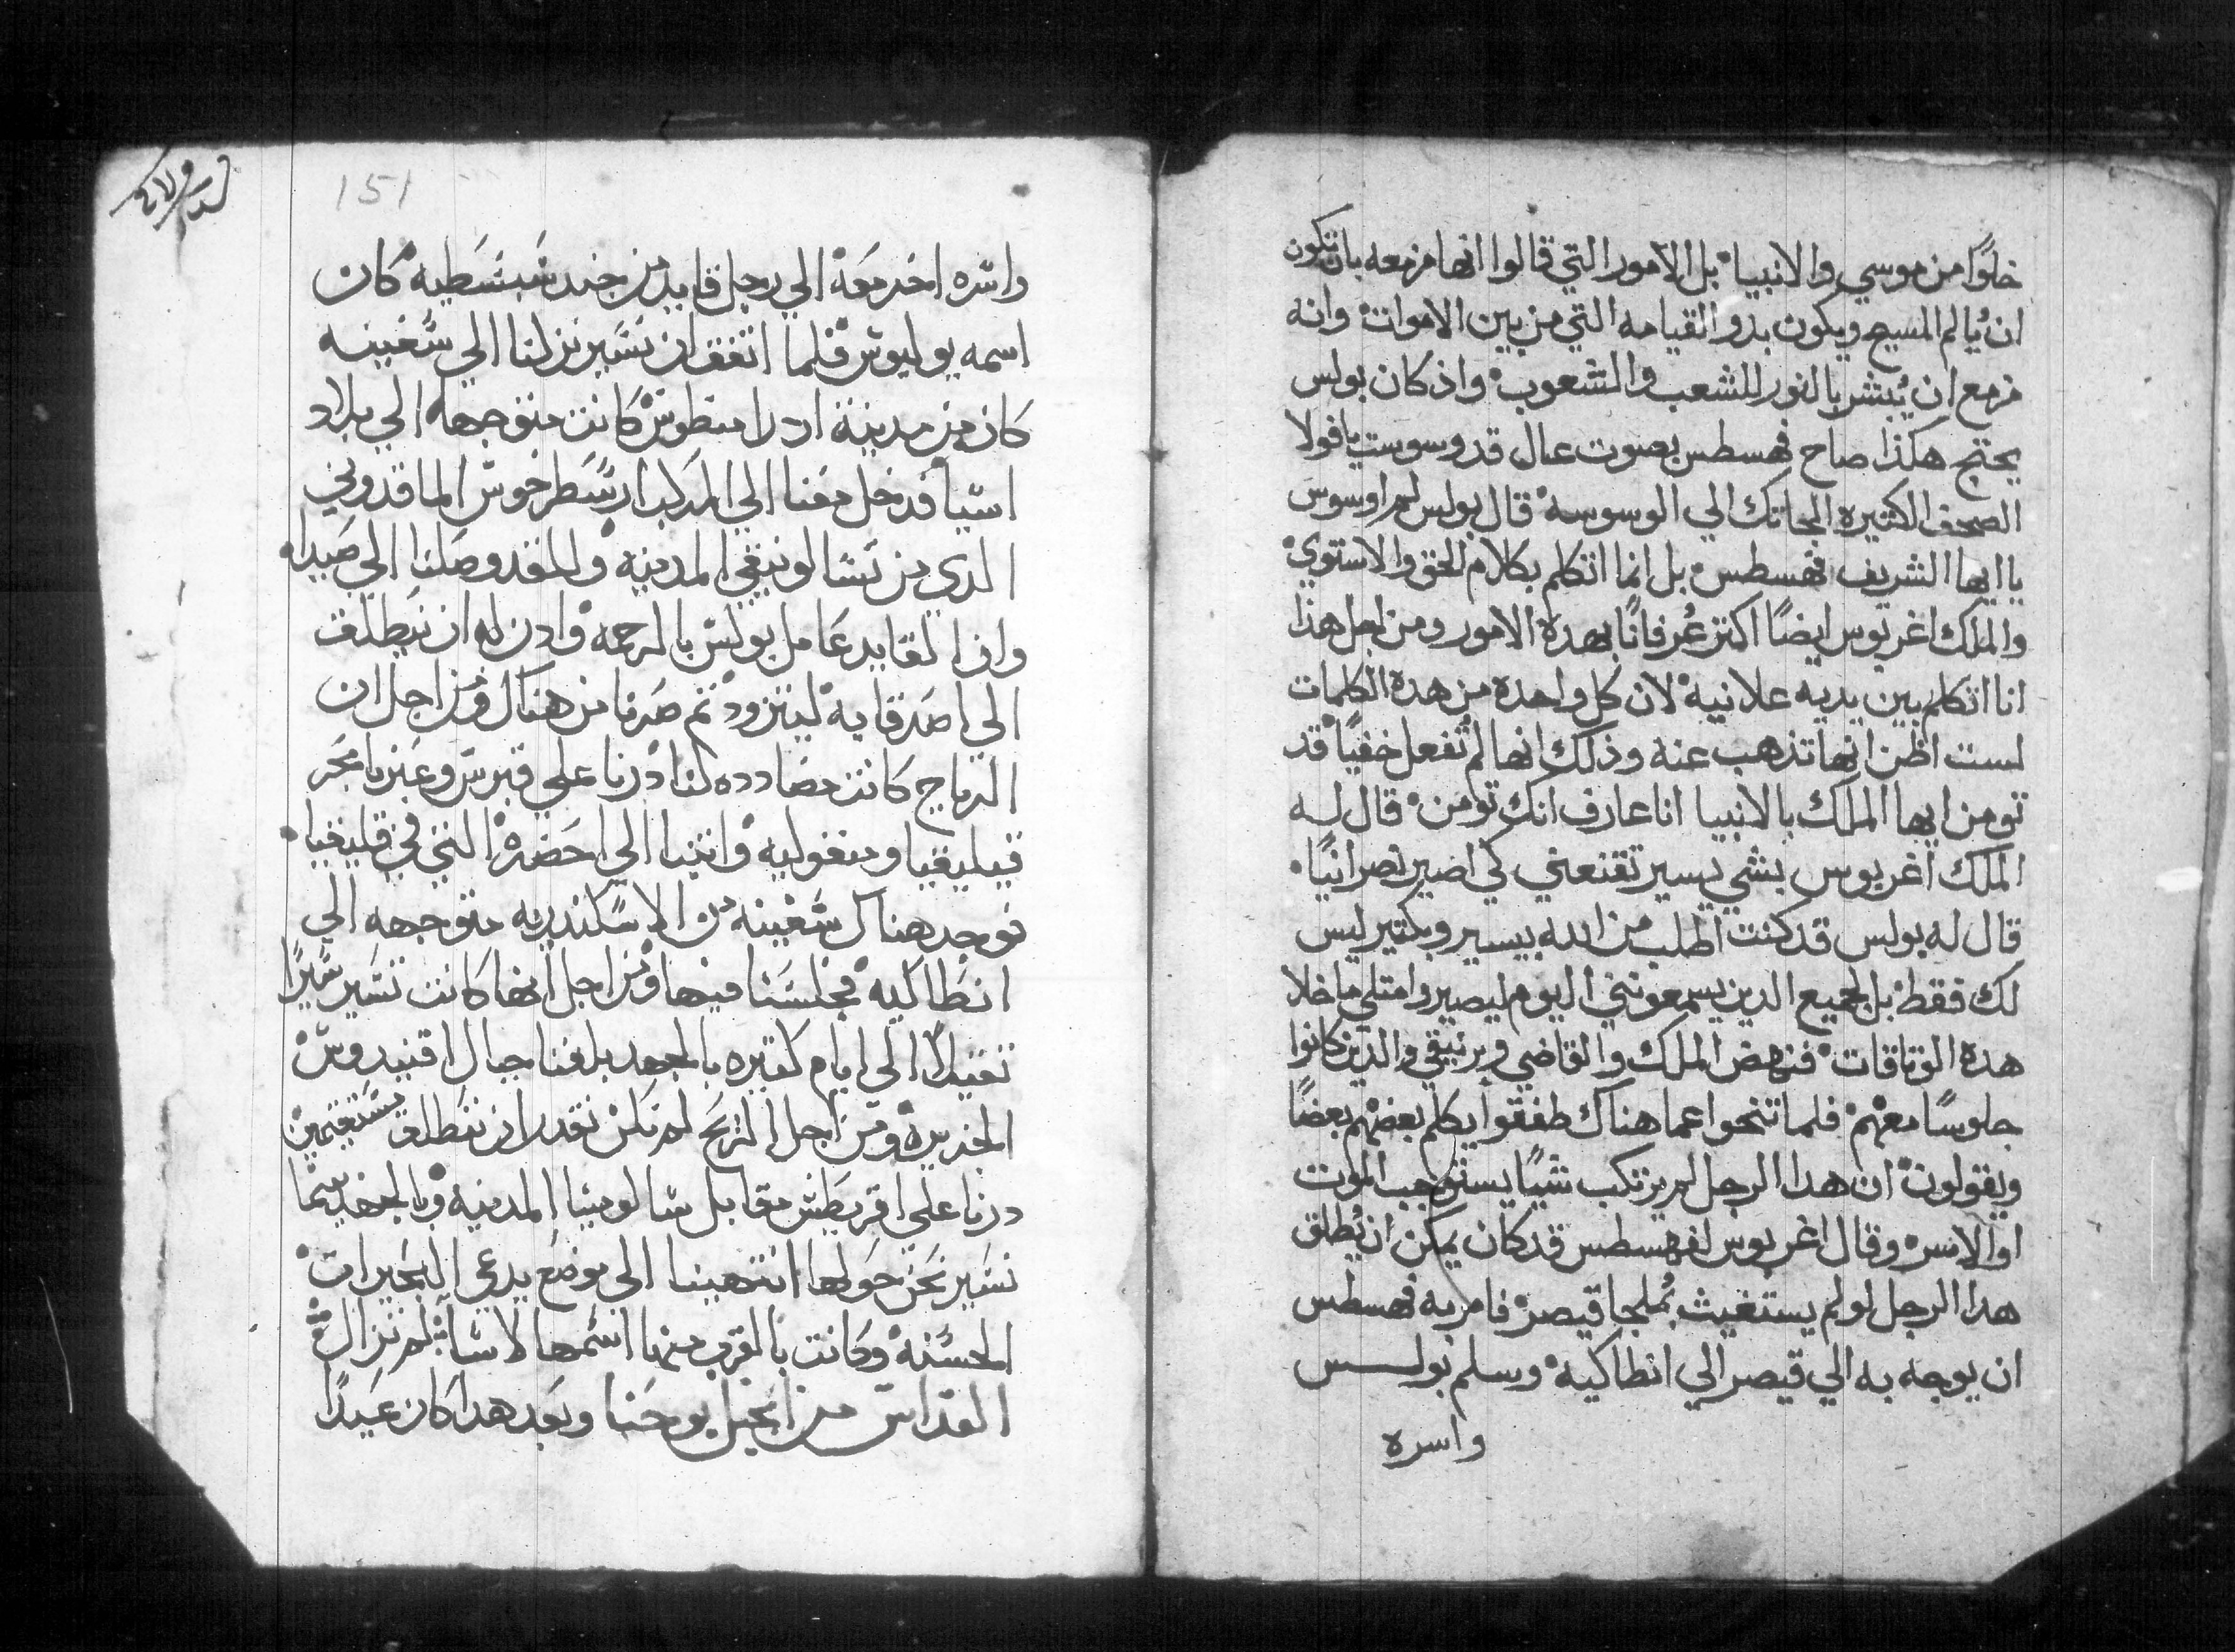 خلوًا من موسي والانبياء بل الامور التي قالوا انها مزمعه بان تكون
ان يالم المسيح ويكون بدو القيامه التي من بين الاموات وانه
مزمع ان يُبشر بالنور للشعب والشعوب واذ كان بولس
يحتج هكذا صاح فهسطس بصوت عال قد وسوست يا فولا
الصحف الكثيره الجاتك الي الوسوسه قال بولس لم اوسوس
يا ايها الشريف فهسطس بل انما اتكلم بكلام الحق والاستوي
والملك اغربوس ايضًا اكتر عُرفانًا بهده الامور ومن اجل هذا
انا اتكلم بين يديه علانيه لان كل واحده من هده الكلمات
لست اظن انها تذهب عنه وذلك انها لم تفعل خفيًا قد
تومن ايها الملك بالانبيا انا عارف انك تومن قال له
الملك اغربوس بشي يسير تقنعني كي اصير نصرانيًا
قال له بولس قد كنت اطلب من الله بيسير وبكتير ليس
لك فقط بل لجميع الدين يسمعونني اليوم ليصيروا متلي ما خلا
هده الوتاقات فنهض الملك والقاضي وبرنيقي والذين كانوا
جلوسًا معهم فلما تنحوا عما هناك طفقوا يكلم بعضهم بعضًا
ويقولون ان هدا الرجل لم يرتكب شيًا يستوجب الموت
او الاسر وقال اغربوس لفهسطس قد كان يمكن ان يُطلق
هدا الرجل لو لم يستغيث بملجا قيصر فامر به فهسطس
ان يوجه به الي قيصر الي انطاكيه وسلم بولس
واسره
151
واسره اخر معه الي رجل قايد من جند سبسطيه كان
اسمه يوليوس فلما اتفق ان نسير نزلنا الي سفينه
كان من مدينة ادرامنطوس كانت متوجهه الي بلاد
اسيا فدخل معنا الي المركب ارسطرخوس الماقدوني
الدي من تسالونيقي المدينه وللغد وصلنا الي صيدا
وان القايد عامل بولس بالرحمه وادن له ان ينطلق
الي اصدقايه ليتزود تم صرنا من هناك ومن اجل ان
الرياح كانت مضادده لنا درنا علي قبرس وعبرنا بحر
قيليقيا ومنفوليه واتينا الي احضره التي في قليقيا
فوجد هناك سفينه من الاسكندريه متوجهه الي
انطاكيه فجلسنا فيها ومن اجل انها كانت تسير سيرًا
تقيلًا الي ايام كتيره بالجهد بلغنا حبال اقنيدوس
الجزيره ومن اجل الريح لم نكن نقدر ان ننطلق مستقيمين
درنا علي اقريطس مقابل سالومينا المدينه وبالجهد بينما
نسير نحن حولها انتهينا الي موضع يدعي البحيرات
الحسنه وكانت بالقرب منها اسمها لاسا لم نزال
القداس من انجيل يوحنا وبعد هدا كان عيدًا